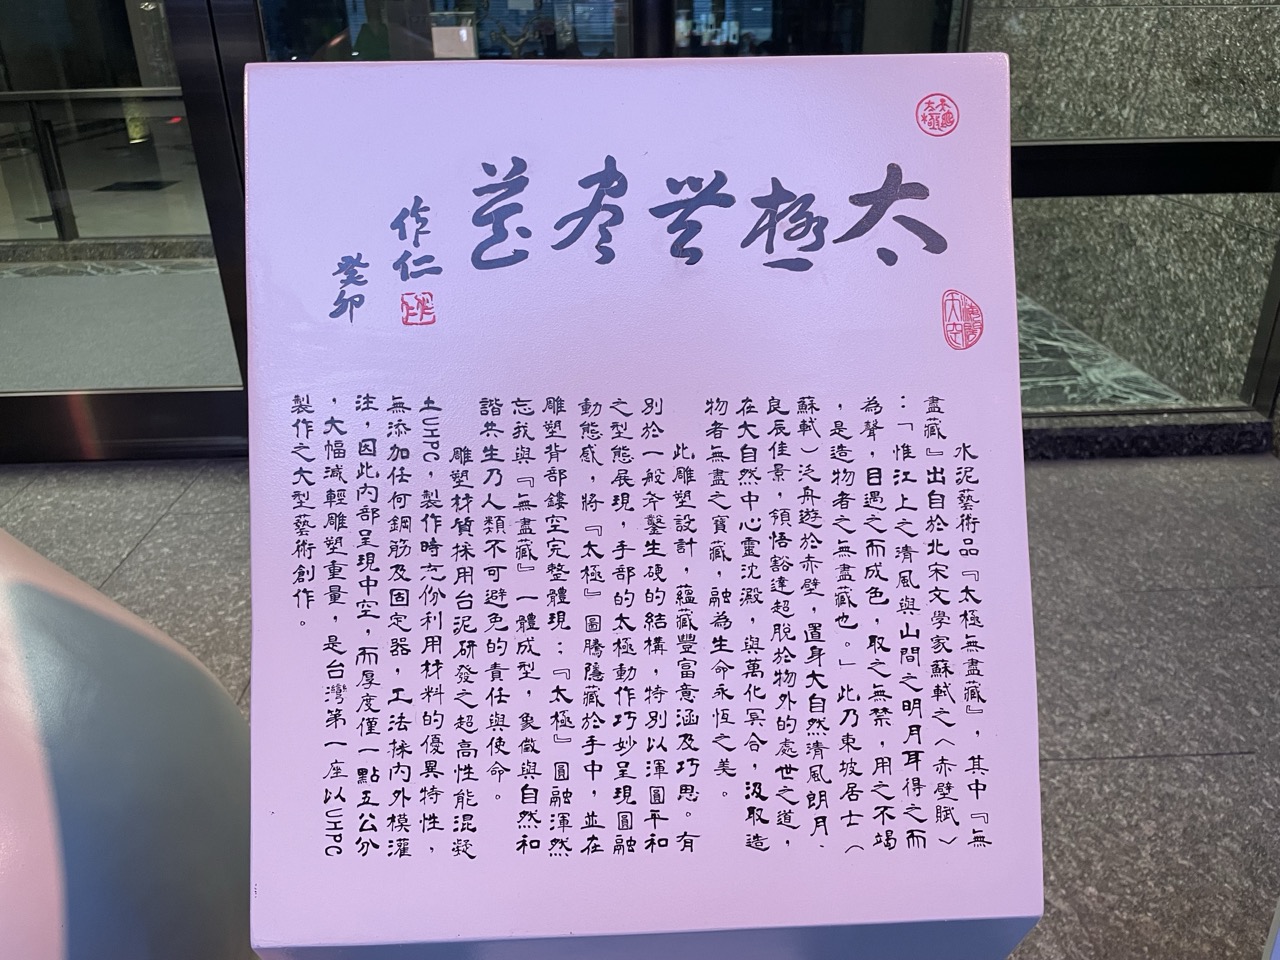 太極無盡藏
作仁
癸卯
海闊天空
水泥藝術品『太極無盡藏』，其中『無
盡藏』出自於北宋文學家蘇軾之〈赤壁賦〉
：「惟江上之清風與山間之明月耳得之而
為聲，目遇之而成色，取之無禁，用之不竭
，是造物者之無盡藏也。」此乃東坡居士（
蘇軾）泛舟遊於赤壁，置身大自然清風朗月、
良辰佳景，領悟豁達超脫於物外的處世之道，
在大自然中心靈沈澱，與萬化冥合，汲取造
物者無盡之寶藏，融為生命永恆之美。
此雕塑設計，蘊藏豐富意涵及巧思。有
別於一般斧鑿生硬的結構，特別以渾圓平和
之型態展現，手部的太極動作巧妙呈現圓融
動態感，將『太極』圖騰隱藏於手中，並在
雕塑背部鏤空完整體現：『太極』圓融渾然
忘我與『無盡藏』一體成型，象徵與自然和
諧共生乃人類不可避免的責任與使命。
雕塑材質採用台泥研發之超高性能混凝
土UHPC，製作時充份利用材料的優異特性，
無添加任何鋼筋及固定器，工法採內外模灌
注，因此內部呈現中空，而厚度僅一點五公分
，大幅減輕雕塑重量，是台灣第一座以UHPC
製作之大型藝術創作。